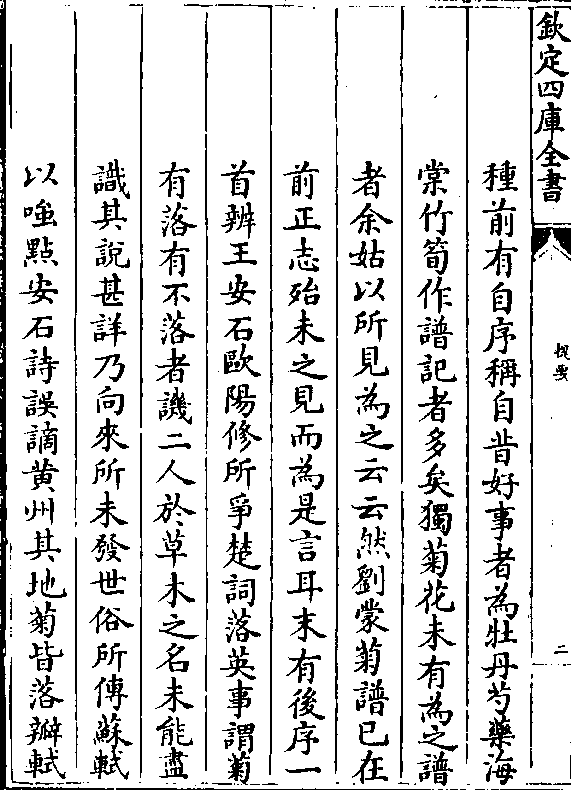 欽定四庫全書
提要
二
種前有自序稱自昔好事者為牡丹芍藥海
棠竹筍作譜記者多矣獨菊花未有為之譜
者余姑以所見為之云云然劉蒙菊譜已在
前正志殆未之見而為是言耳末有後序一
首辨王安石歐陽修所爭楚詞落英事謂菊
有落有不落者譏二人於草木之名未能盡
識其說甚詳乃向來所未發世俗所傳蘇軾
以嗤點安石詩誤謫黄州其地菊皆落瓣軾